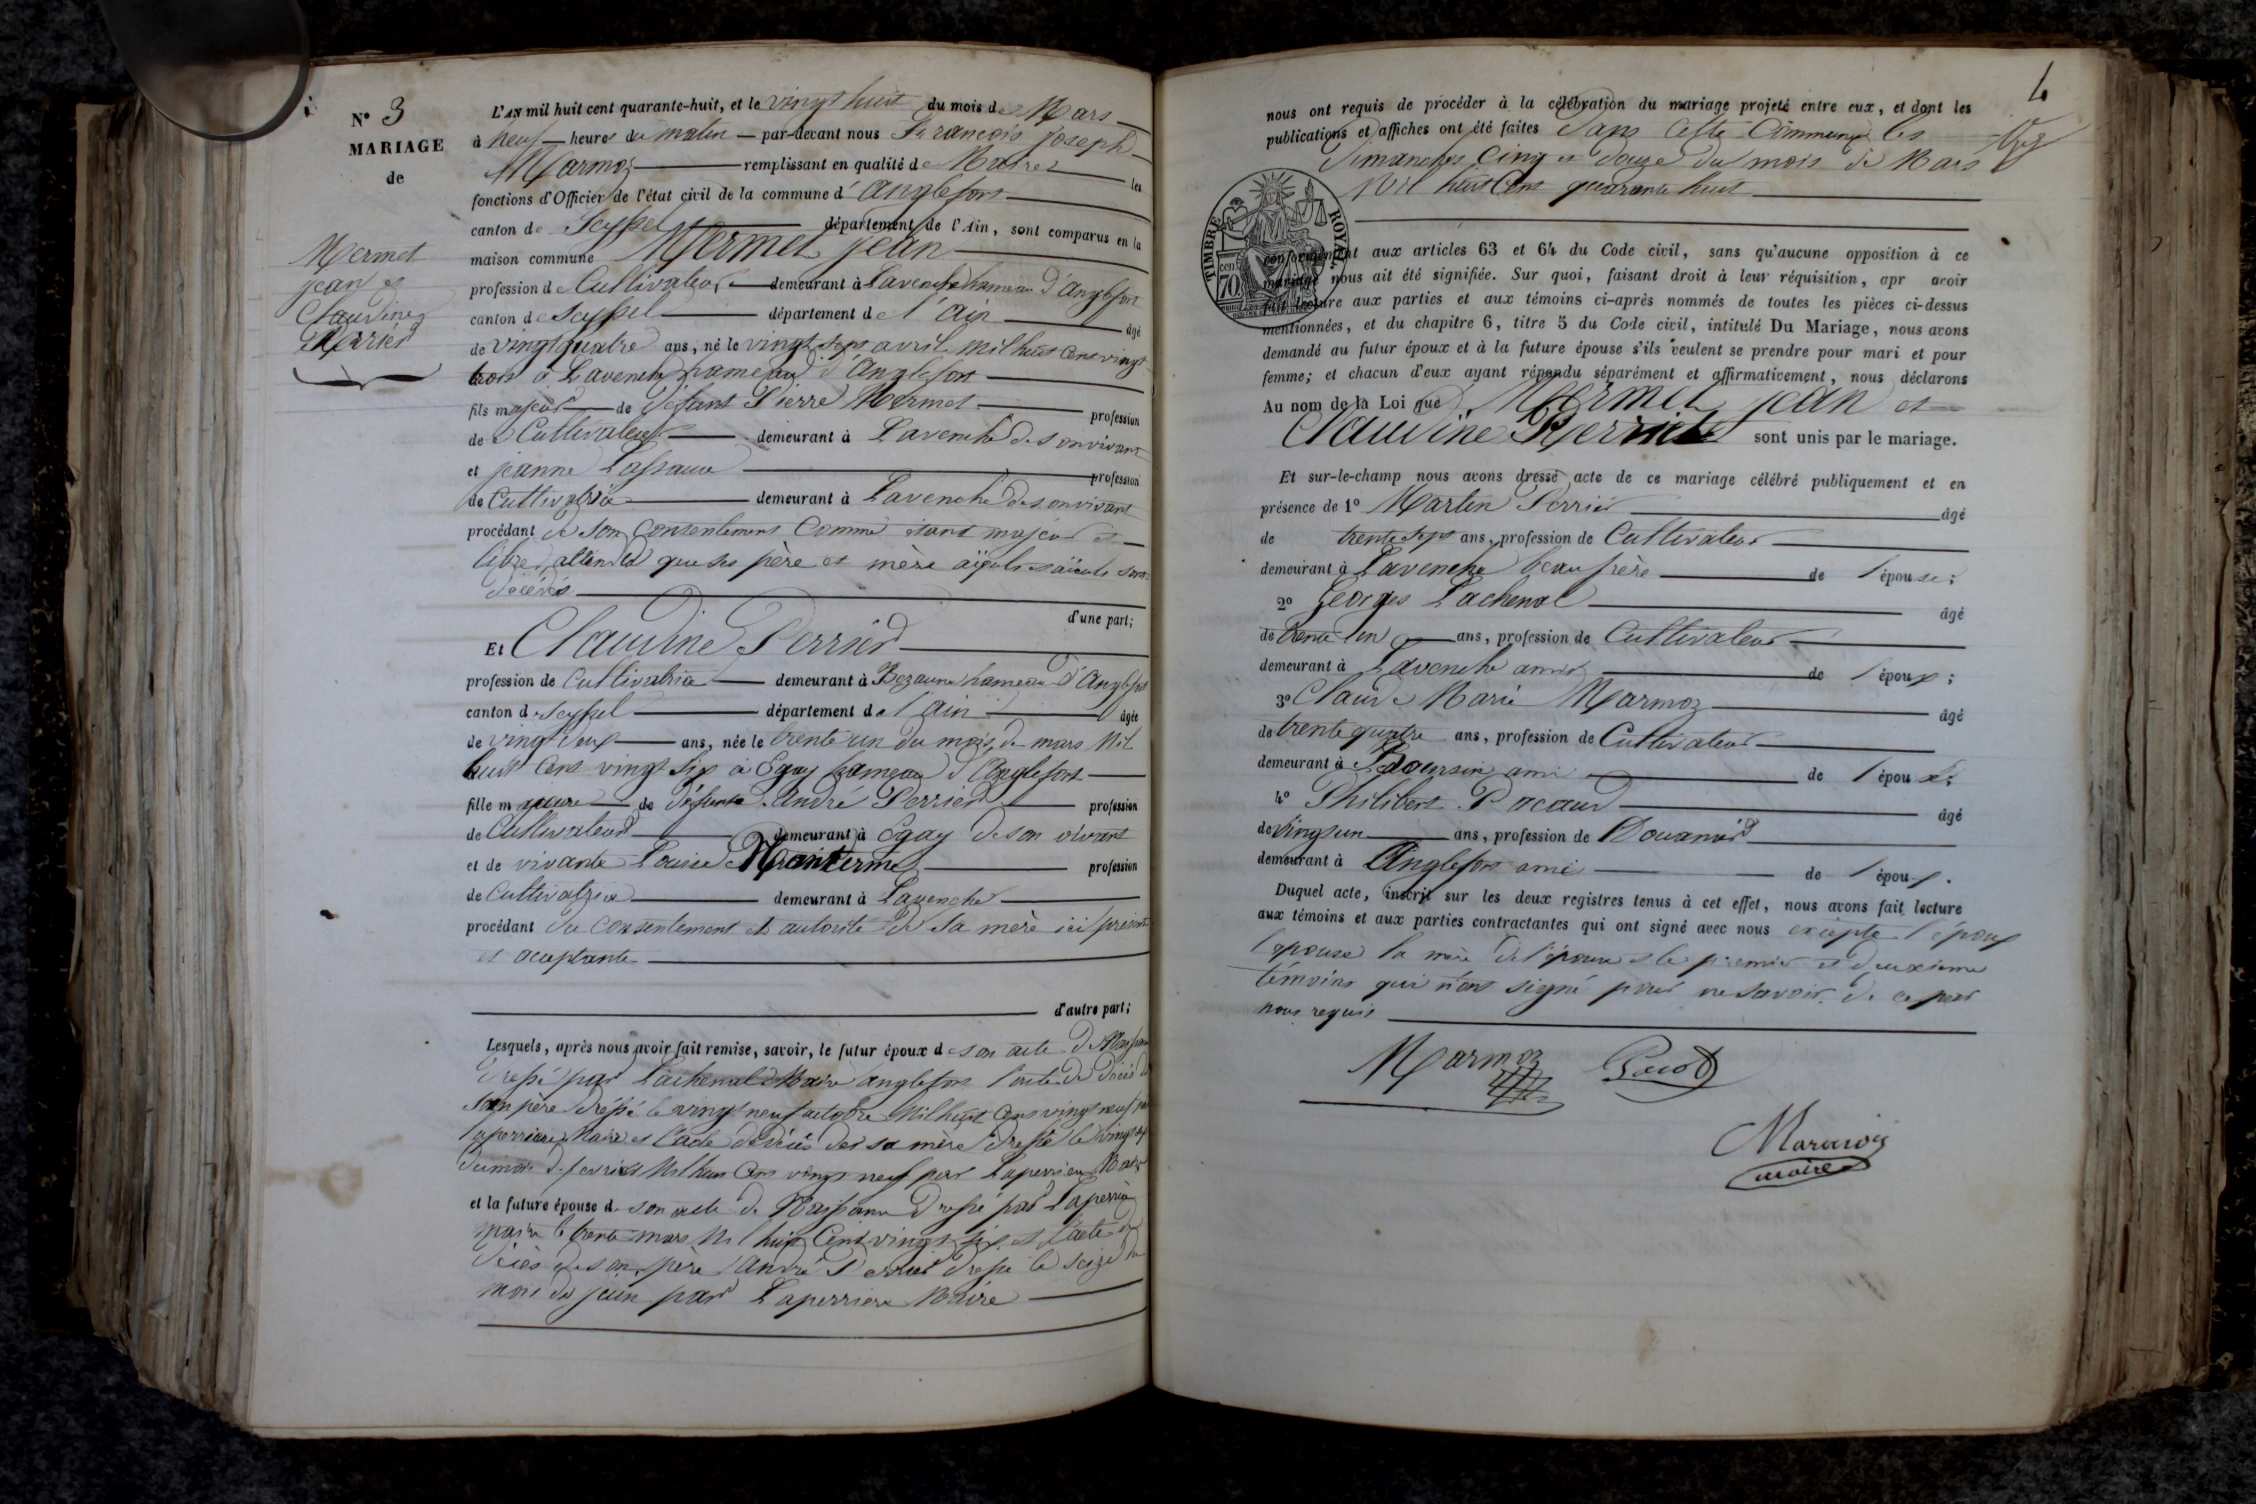 N° 3
MARIAGE
de
Mermet
jean et
Claudine
Perrier
L'AN mil huit cent quarante-huit, et le vingt huit du mois de Mars
à neuf heures du matin par-devant nous François joseph
Marmoz remplissant en qualité de Maire les
fonctions d'Officier de l'état civil de la commune d'Anglefort
canton de Seyssel département de l'Ain, sont comparus en la
maison commune Mermet jean
profession de Cultivateur demeurant à Lavenche hameau d'Anglefort
canton de Seyssel département de l'ain âgé
de vingt quatre ans, né le vingt sept avril mil huit Cent vingt
trois à Lavenche hameau d'Anglefort
fils majeur de défunt Pierre Mermet profession
de Cultivateur demeurant à Lavenche de son vivant
et jeanne Lassaux profession
de Cultivatrice demeurant à Lavenche de son vivant
procédant de son Consentement Comme étant majeur et
libre attendu que ses père et mère aïeuls et aïeules sont
décédés
d'une part;
Et Claudine Perrier
profession de Cultivatrice demeurant à hameau d'Anglefort
canton de Seyssel département de l'ain âgée
de vingt deux ans, née le trente un du mois de mars Mil
huit Cent vingt six à Egay hameau d'Anglefort
fille majeure de défunt André Perrier profession
de Cultivateur demeurant à Egay de son vivant
et de vivante Louise profession
de Cultivatrice demeurant à Lavenche
procédant du Consentement et autorité de sa mère ici présente
et aceptante
d'autre part;
Lesquels, après nous avoir fait remise, savoir, le futur époux de son acte de Naissance
dressé par Lachenal Maire anglefort l'acte de décès de
son père dréssé le vingt neuf octobre Mil huit Cent vingt neuf par
Laperriere Maire et l'acte de décès de sa mère dressé le vingt
du mois de fevrier Mil huit Cent vingt neuf par Laperriere Maire
et la future épouse de son acte de Naissance dressé par Laperriere
maire le trente mars Mil huit Cent vingt six et l'acte de
décès de son père André Perrier dressé le seize du
mois de juin par Laperriere Maire
4
nous ont requis de procéder à la célébration du mariage projeté entre eux, et dont les
publications et affiches ont été faites dans cette Commune les
dimanches Cinq et douze du mois de Mars
Mil huit Cent quarante huit
TIMBRE ROYAL
cen. 70
conformément aux articles 63 et 64 du Code civil, sans qu'aucune opposition à ce
mariage nous ait été signifiée. Sur quoi, faisant droit à leur réquisition, apr avoir
fait lecture aux parties et aux témoins ci-après nommés de toutes les pièces ci-dessus
mentionnées, et du chapitre 6, titre 5 du Code civil, intitulé Du Mariage, nous avons
demandé au futur époux et à la future épouse s'ils veulent se prendre pour mari et pour
femme; et chacun d'eux ayant répondu séparément et affirmativement, nous déclarons
Au nom de la Loi que Mermet jean et
Claudine Perrier sont unis par le mariage.
Et sur-le-champ nous avons dressé acte de ce mariage célébré publiquement et en
présence de 1° Martin Perrier âgé
de trente sept ans, profession de Cultivateur
demeurant à Lavenche beau frère de l'épouse;
2° Georges Lachenal âgé
de trente un ans, profession de Cultivateur
demeurant à Lavenche ami de l'époux;
3° Claude Marie Marmoz âgé
de trente quatre ans, profession de Cultivateur
demeurant à ami de l'époux;
4° Philibert âgé
de vingt un ans, profession de Douanier
demeurant à Anglefort ami de l'époux.
Duquel acte, inscrit sur les deux registres tenus à cet effet, nous avons fait lecture
aux témoins et aux parties contractantes qui ont signé avec nous excepté l'époux
l'épouse la mère de l'épouse et le premier et deuxieme
témoins qui n'ont signé pour ne savoir de ce par
nous requis
Marmoz
Marmoz
maire